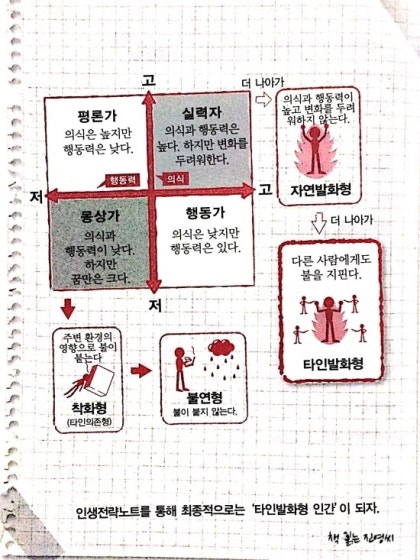 고
더 나아가
평론가
의식은 높지만
행동력은 낮다.
실력자
의식과 행동력은
높다. 하지만 변화를
두려워한다.
의식과 행동력이
높고 변화를 두려
워하지 않는다.
자연발화형
행동력
의식
저
고
더 나아가
몽상가
의식과
행동력이 낮다.
하지만
꿈만은 크다.
행동가
의식은 낮지만
행동력은 있다.
다른 사람에게도
불을 지핀다.
타인발화형
저
주변 환경의
영향으로 불이
붙는다
착화형
(타인의존형)
불연형
불이 붙지 않는다.
인생전략노트를 통해 최종적으로는 '타인발화형 인간'이 되자.
책 읽는 진영씨